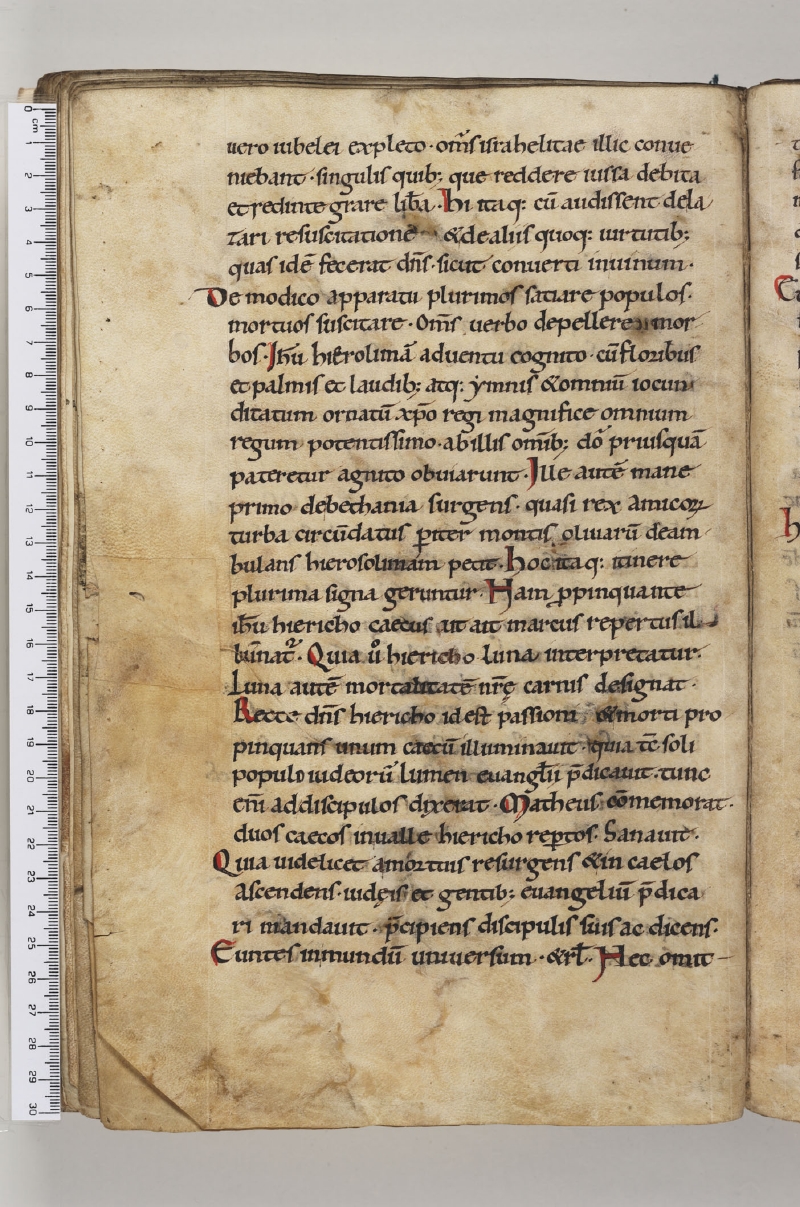 uero iubelei expleto · om̄s israhelitae illic conue
niebant · singulis quib: que reddere iussa debita
et redinte grare lib̄a · Hi itaq: cū audissent dela
zari resuscitationē & de aliis quoq: uirtutib:
quas idē fecerat dn̄s · sicut conuerti in uinum ·
De modico apparatu plurimos satiare populos ·
mortuos suscitare · Om̄s uerbo depellere mor
bos · Ih̄u hierolimā aduentu cognito · cū floribus
et palmis et laudib: atq: ymnis & omniū iocun
ditatum ornatū xp̄o regi magnifice omnium
regum potentissimo · ab illis omīb: dō priusquā
pateretur agnito obuiarunt · Ille autē mane
primo debethania surgens · quasi rex amicoꝝ
turba circūdatus p̄iter montis oliuarū deam
bulans hierosolimam petit · Hoc itaq: itinere
plurima signa geruntur · Nam ꝓpinquante
ih̄u hiericho caecus ait ait marcus repertus il
Quia ū hiericho luna interpretatur ·
Luna autē mortalitatē nr̄ę carnis designat ·
Recte dn̄s hiericho id est passioni & morti pro
pinquans unum caecū illuminauit · quia tc̄ soli
populo iudeorū lumen euanglii p̄dicauit · tunc
eni ad discipulos dixerat · Matheus cōmemorat ·
duos caecos in ualle hiericho rep̄tos · Sanauit ·
Quia uidelicet a mortuis resurgens & in caelos
ascendens · iudęis et gentib: euangeliū p̄dica
ri mandauit · p̄cipiens discipulis suis ac dicens ·
Euntes in mundū uniuersum · & rl̄ · Hec omit
0 cm 1 2 3 4 5 6 7 8 9 10 11 12 13 14 15 16 17 18 19 20 21 22 23 24 25 26 27 28 29 30